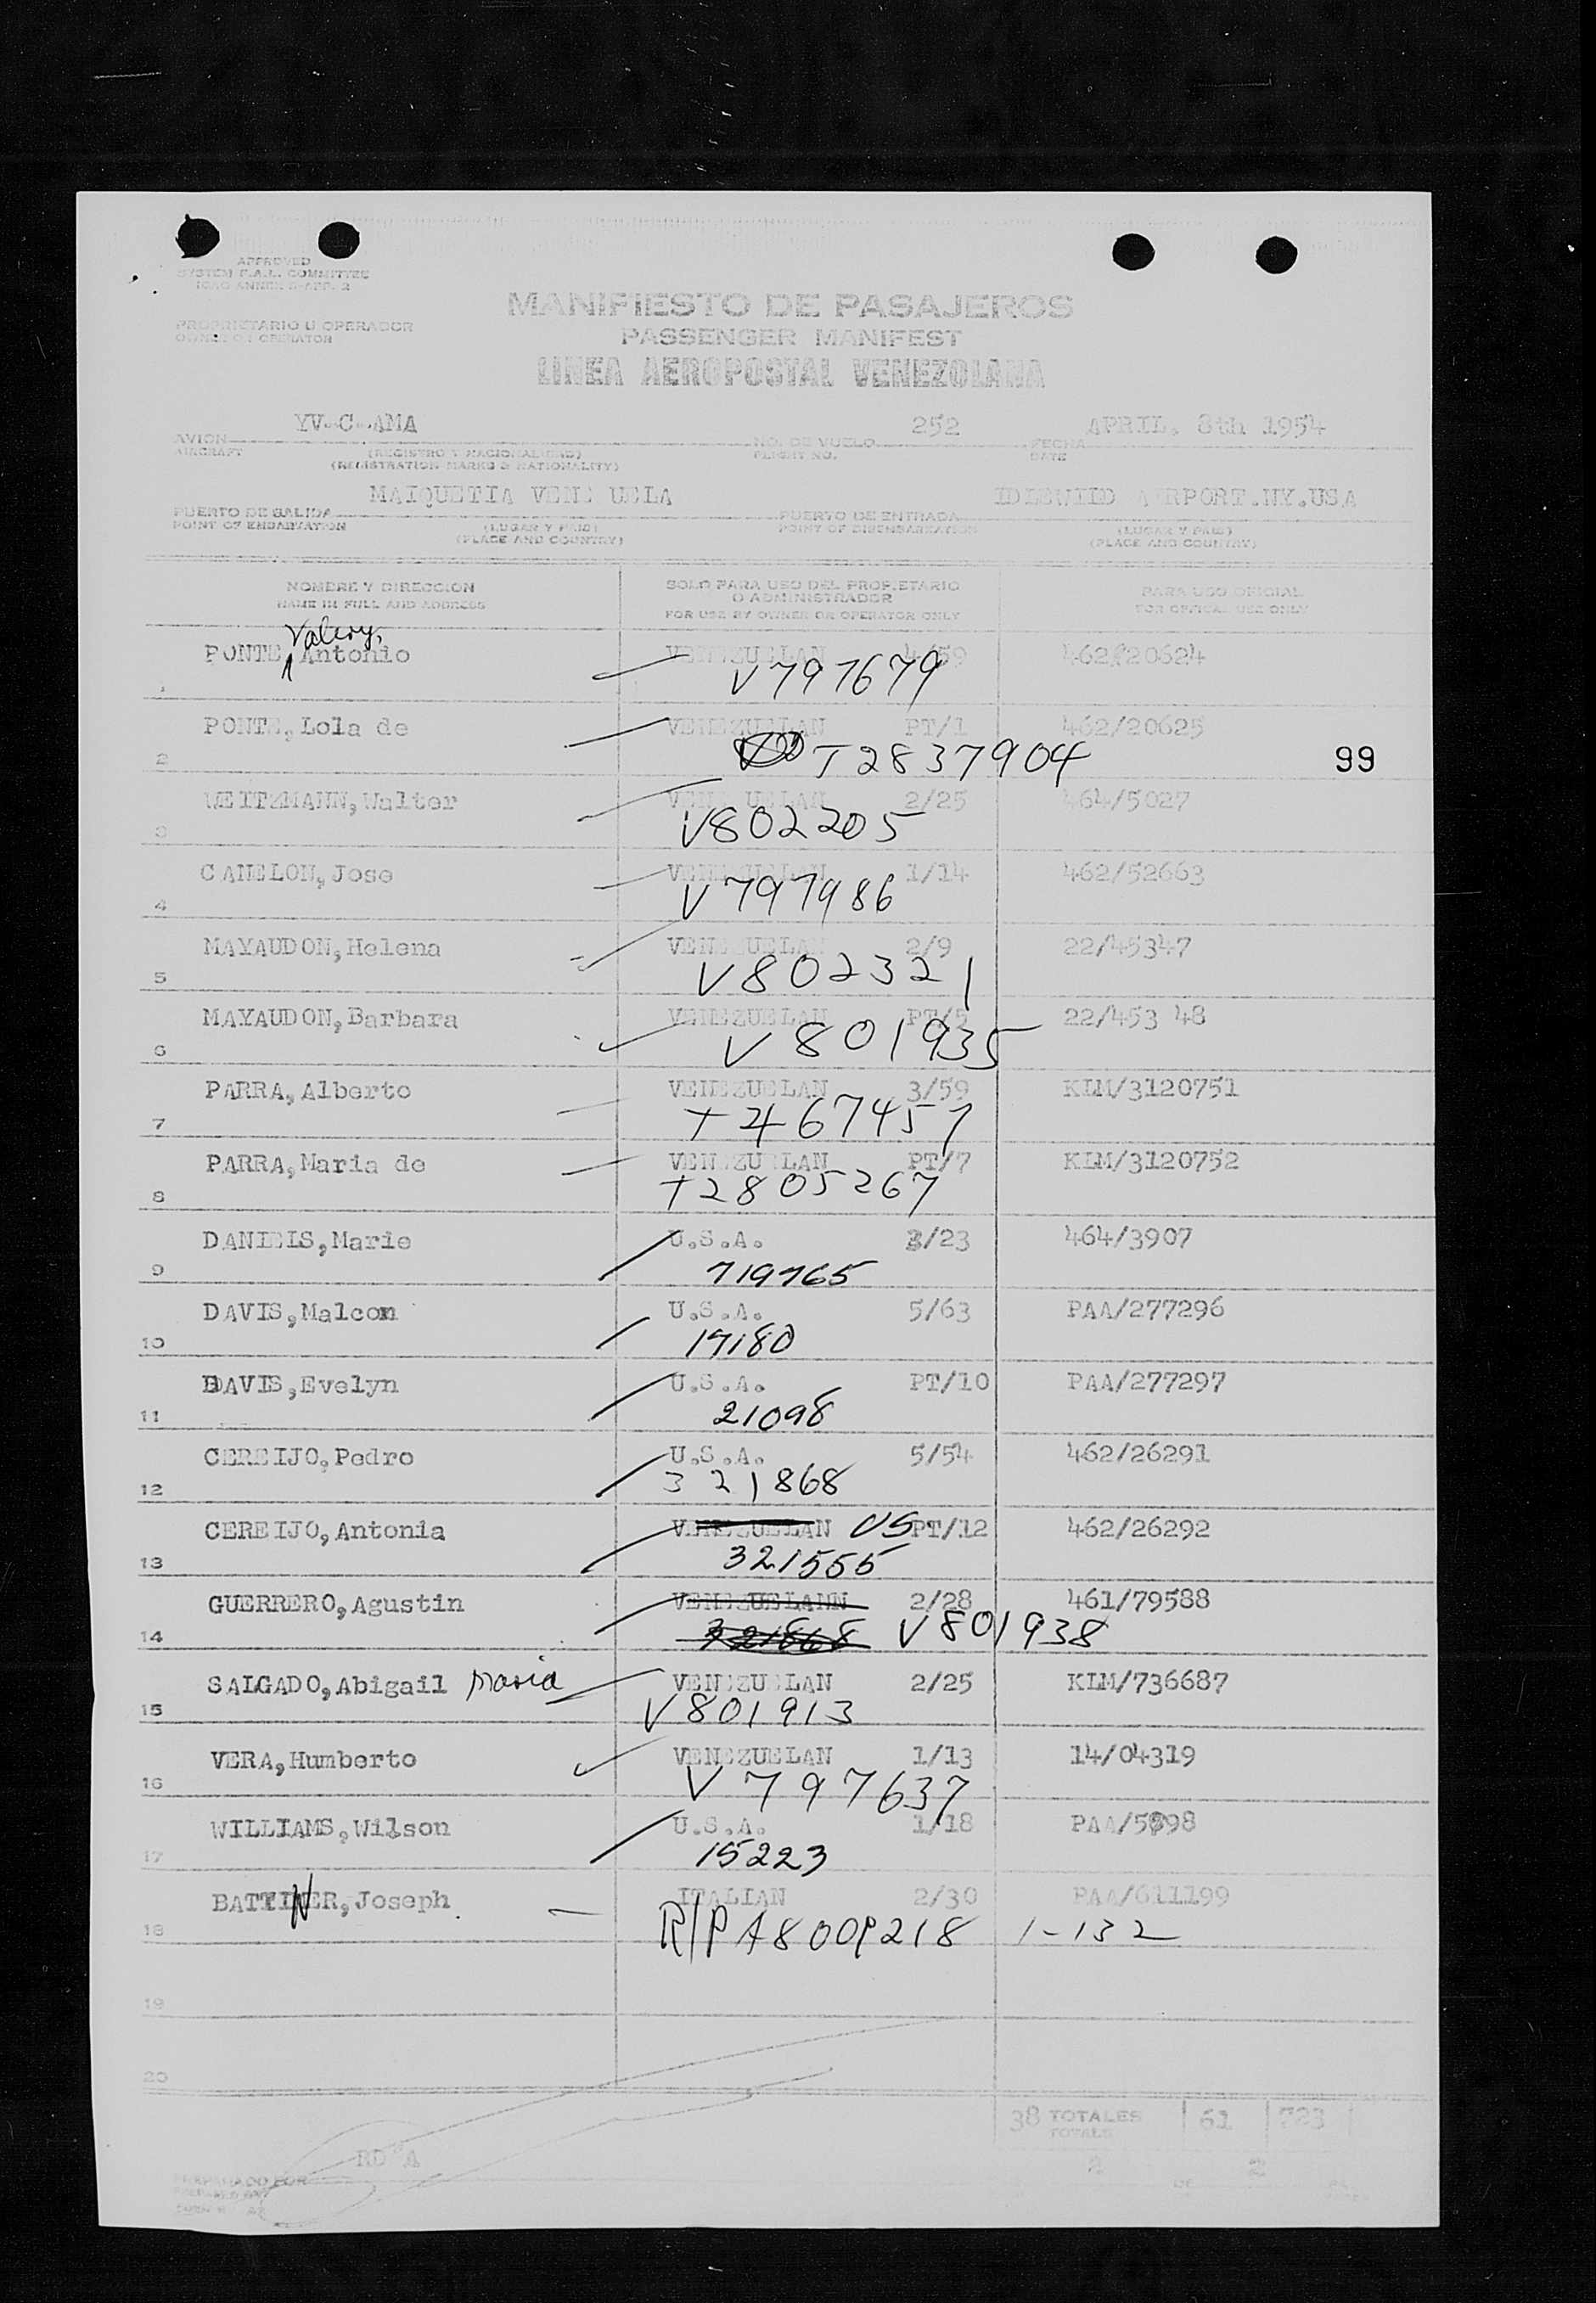 APPROVED
SYSTEM F.A.L. COMMITTEE
ICAO ANNEX 9-APP. 2
MANIFIESTO DE PASAJEROS
PROPRIETARIO U OPERADOR
OWNER OR OPERATOR
PASSENGER MANIFEST
LINEA AEROPOSTAL VENEZOLANA
YV-C-AMA 252 APRIL. 8th 1954
AVION NO. DE VUELO FECHA
AIRCRAFT (REGISTRO Y NACIONALIDAD) FLIGHT NO. DATE
(REGISTRATION MARKS & NATIONALITY)
MAIQUETIA VENEZUELA IDLEWILD AIRPORT.NY.USA
PUERTO DE SALIDA PUERTO DE ENTRADA
POINT OF EMBARKATION (LUGAR Y PAIS) POINT OF DISEMBARKATION (LUGAR Y PAIS)
(PLACE AND COUNTRY) (PLACE AND COUNTRY)
NOMBRE Y DIRECCION SOLO PARA USO DEL PROPIETARIO PARA USO OFICIAL
O ADMINISTRADOR
NAME IN FULL AND ADDRESS FOR USE BY OWNER OR OPERATOR ONLY FOR OFFICAL USE ONLY
Valery,
PONTE, Antonio VENEZUELAN 4/59 462/20624
1 V797679
PONTE, Lola de VENEZUELAN PT/1 462/20625
2 T2837904 99
WEITZMANN, Walter VENEZUELAN 2/25 464/5027
3 V802205
CAMELON, Jose VENEZUELAN 1/14 462/52663
4 V797986
MAYAUDON, Helena VENEZUELAN 2/9 22/45347
5 V802321
MAYAUDON, Barbara VENEZUELAN PT/5 22/453 48
6 V801935
PARRA, Alberto VENEZUELAN 3/59 KLM/3120751
7 T2467457
PARRA, Maria de VENEZUELAN PT/7 KLM/3120752
8 T2805267
DANIELS, Marie U.S.A. 3/23 464/3907
9 719765
DAVIS, Malcom U.S.A. 5/63 PAA/277296
10 17180
DAVIS, Evelyn U.S.A. PT/10 PAA/277297
11 21098
CEREIJO, Pedro U.S.A. 5/54 462/26291
12 321868
CEREIJO, Antonia VENEZUELAN US PT/12 462/26292
13 321555
GUERRERO, Agustin VENEZUELANN 2/28 461/79588
14 321868 V801938
SALGADO, Abigail Maria VENEZUELAN 2/25 KLM/736687
15 V801913
VERA, Humberto VENEZUELAN 1/13 14/04319
16 V797637
WILLIAMS, Wilson U.S.A. 1/18
17 15223
BATTINER, Joseph ITALIAN 2/30 PAA/611199
18 R/P A8009218 1-132
19
20
38 TOTALES 61 723
TOTALS
2 DE 2
PREPARADO POR
PREPARED BY